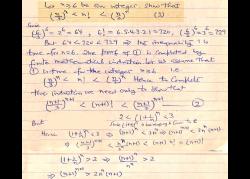 Let n ≥ 6 be an integer. Show that
(n/3)^n < n! < (n/2)^n (1)
Since
(6/3)^6 = 2^6 = 64, 6! = 6·5·4·3·2·1 = 720, (6/2)^6 = 3^6 = 729
But 64 < 720 < 729 ⇒ the inequality 1 is
true for n=6. The proof of (1) is completed by
finite mathematical induction. Let us assume that
(1) is true for the integer n ≥ 6 i.e.
(n/3)^n < n! < (n/2)^n Hence to complete
the induction we need only show that
((n+1)/3)^(n+1) < (n+1)! < ((n+1)/2)^(n+1) (2)
But 2 < (1+1/n)^n < 3
Hence (1+1/n)^n < 3 ⇒ (n+1)^n < 3n^n ⇒ (n+1)^(n+1) < 3n^n (n+1)
(1+1/n)^n > 2 ⇒ (n+1)^n > 2
⇒ (n+1)^(n+1) > 2n^n (n+1)